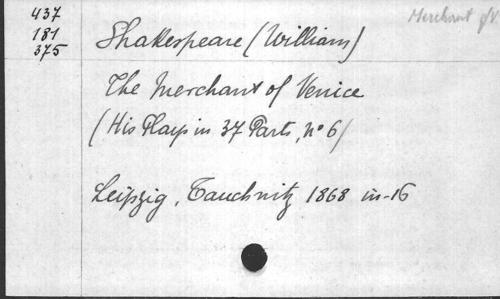 437
181
375
Merchant of V.
Shakespeare (William)
The Merchant of Venice
(His Plays in 37 Parts, nº 6)
Leipzig, Tauchnitz 1868 in-16